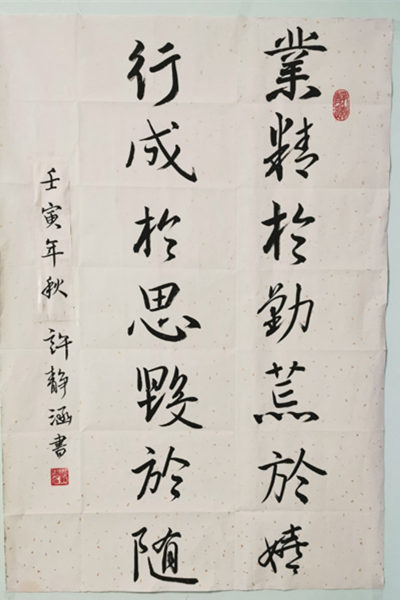 業精於勤荒於嬉
行成於思毀於随
壬寅年秋 許静涵書